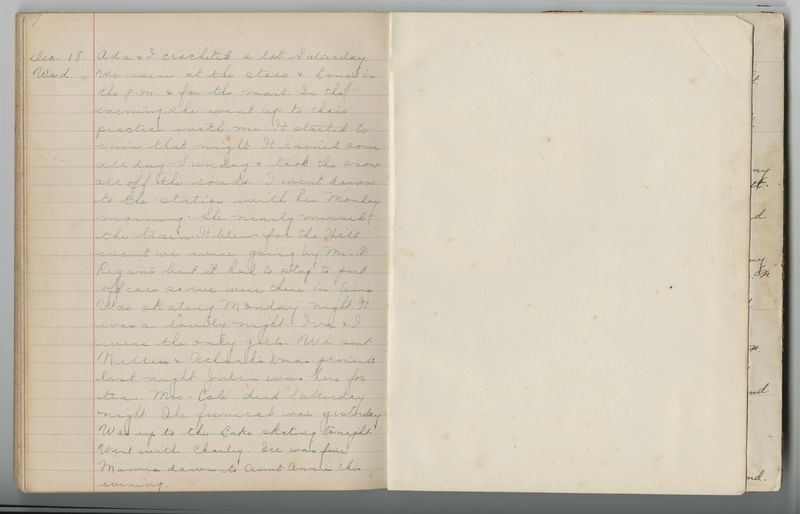 Dec. 18 Ada & I crocheted a lot Saturday.
Wed. We were at the store & Lena's in
the P.M. & for the mail. In the
evening she went up to choir
practice with me. It started to
rain that night. It rained some
all day Sunday & took the snow
all off the roads. I went down
to the station with her Monday
morning. She nearly missed
the train. It blew for the Hill
went we were going by Mr. F
Regan's but it had to stop to put
off cars so we were there in time.
Was skating Monday night. It
was a lovely night. Iva & I
were the only girls. We sent
Millie's & Xmas presents
last night. Julia was here for
tea. Mrs. Cole died Saturday
night. The funeral was yesterday
Was up to the Lake skating tonight.
Went with Charley. Ice was fine
Mamma down to Aunt Annie's this
evening.